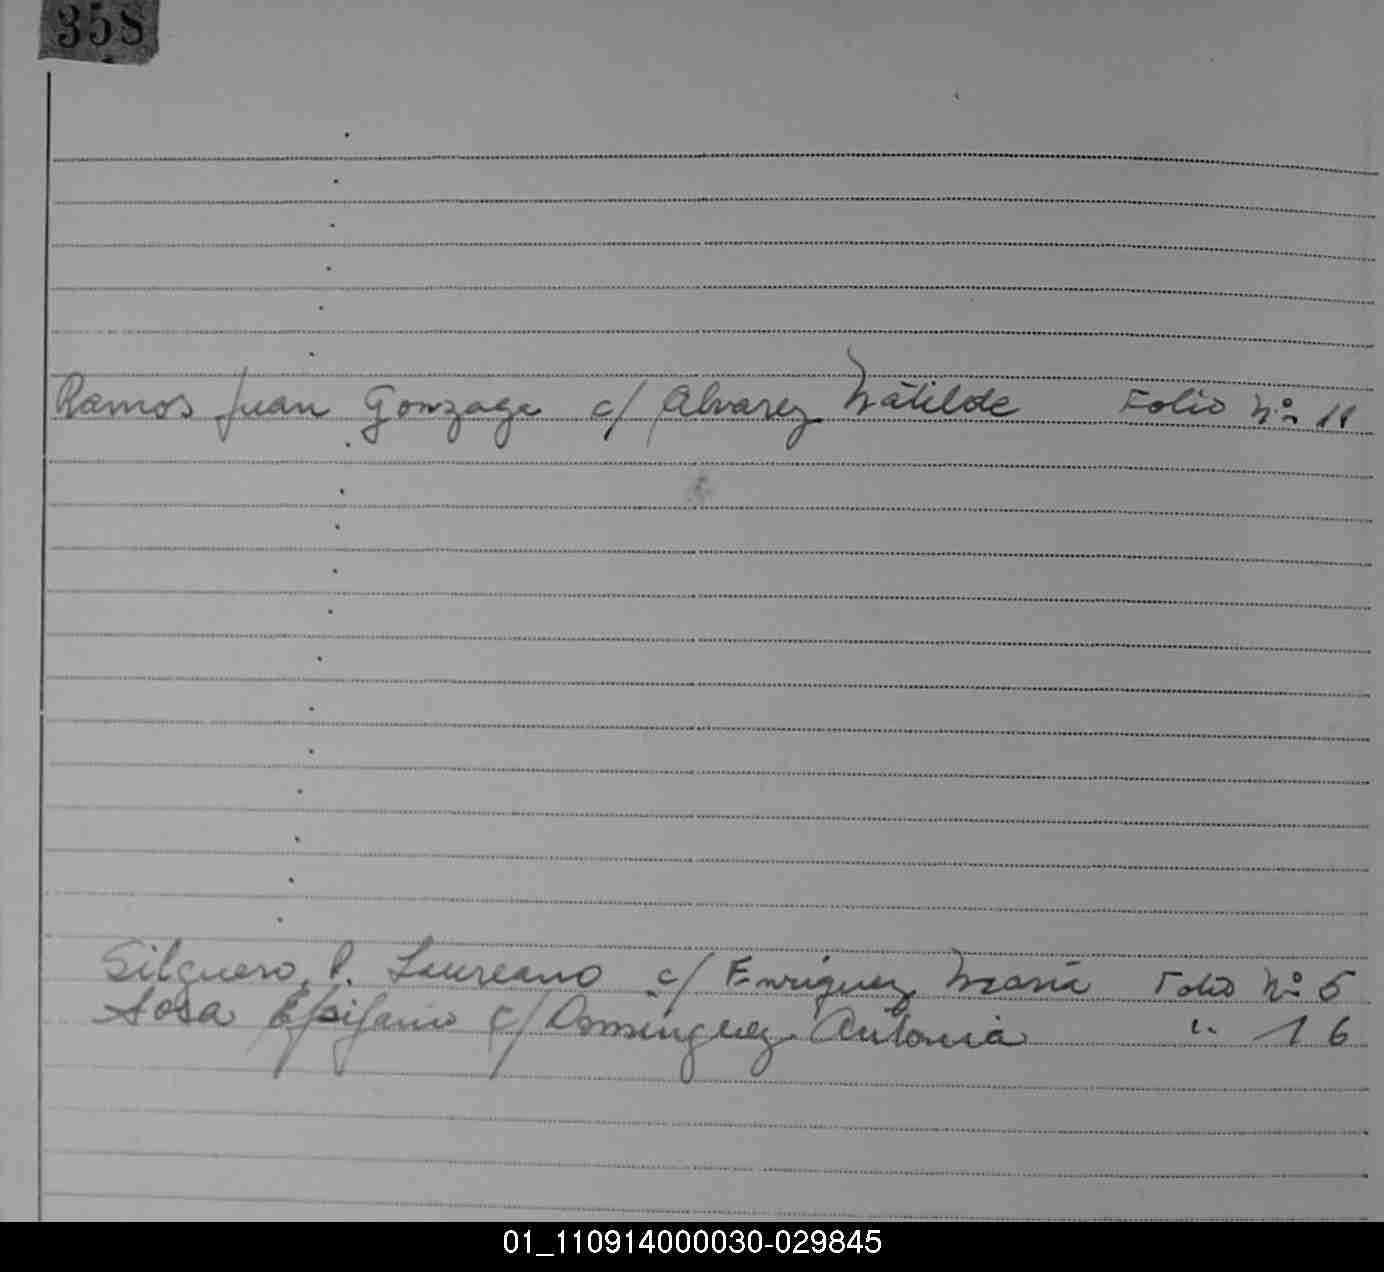 358
Ramos Juan Gonzaga c/ Alvarez Matilde Folio Nº 11
Silguero, P. Laureano c/ Enriguez Maria Folio Nº 5
Sosa Epifanio c/ Dominguez Antonia " 16
01_110914000030-029845